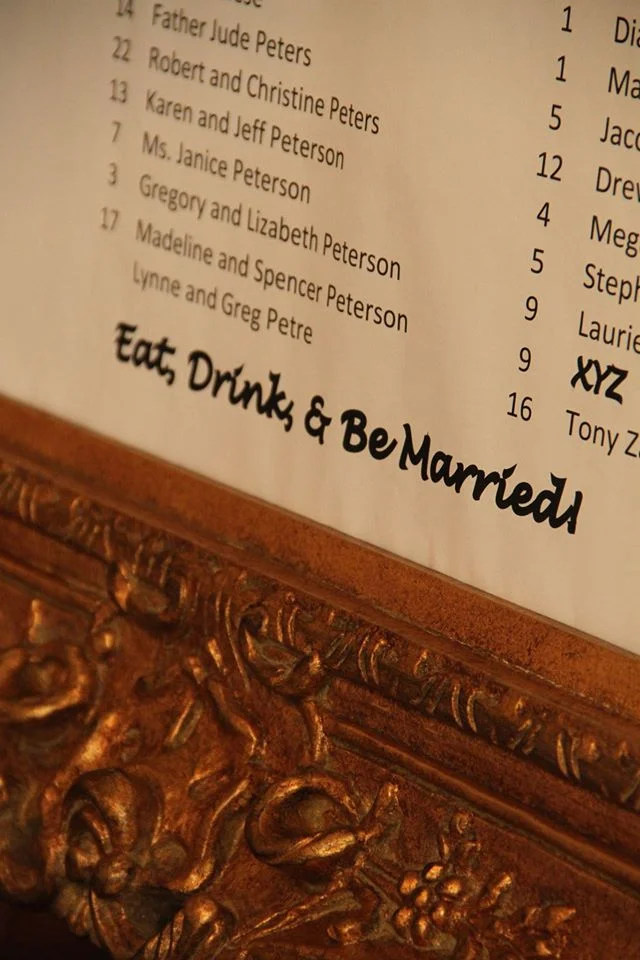 14 Father Jude Peters
22 Robert and Christine Peters
13 Karen and Jeff Peterson
7 Ms. Janice Peterson
3 Gregory and Lizabeth Peterson
17 Madeline and Spencer Peterson
Lynne and Greg Petre
Eat, Drink, & Be Married!
1
1
5
12
4
5
9 Laurie
9 XYZ
16 Tony